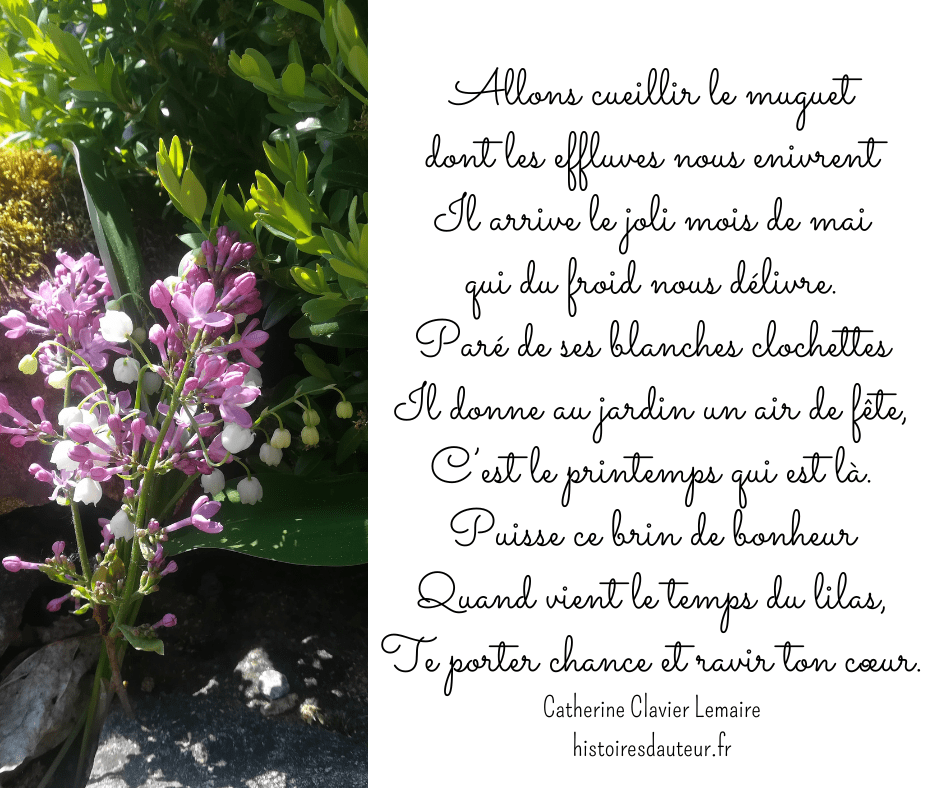 Allons cueillir le muguet
dont les effluves nous enivrent
Il arrive le joli mois de mai
qui du froid nous délivre.
Paré de ses blanches clochettes
Il donne au jardin un air de fête,
C'est le printemps qui est là.
Puisse ce brin de bonheur
Quand vient le temps du lilas,
Te porter chance et ravir ton cœur.
Catherine Clavier Lemaire
histoiresdauteur.fr